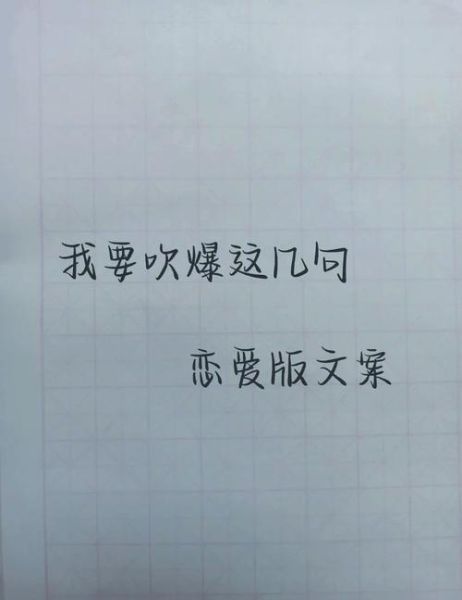 我要吹爆这几句
恋爱版文案